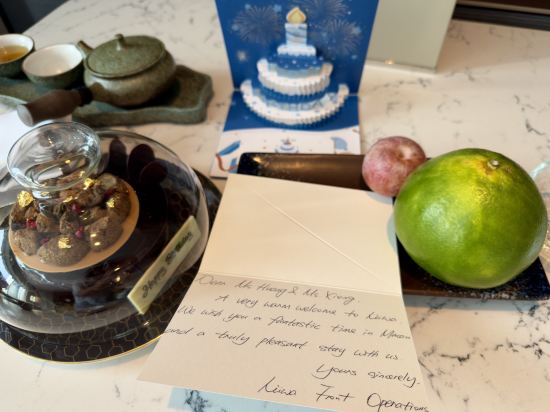 Happy Birthday
Dear Mr Huang & Ms Xiang.
A very warm welcome to Nüwa.
We wish you a fantastic time in Macau
and a truly pleasant stay with us.
Yours sincerely.
Nüwa Front Operations